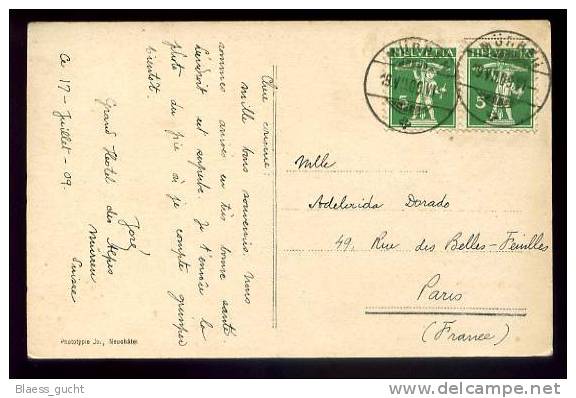 Chère cousine:
Mille bons souvenirs. Nous
sommes arrivés en très bonne santé
L'endroit est superbe. Je t'envoie la
photo du pic où je compte grimper
bientôt.
José
Grand Hotel des Alpes
Mürren
Suisse
Ce 17 - Juillet - 09.
HELVETIA
HELVETIA
5
5
MÜRREN
MÜRREN
Mlle
Adelaida Dorado
49, Rue des Belles-Feuilles
Paris
(France)
Phototypie Co., Neuchâtel
Blaess_gucht
delcampe.net